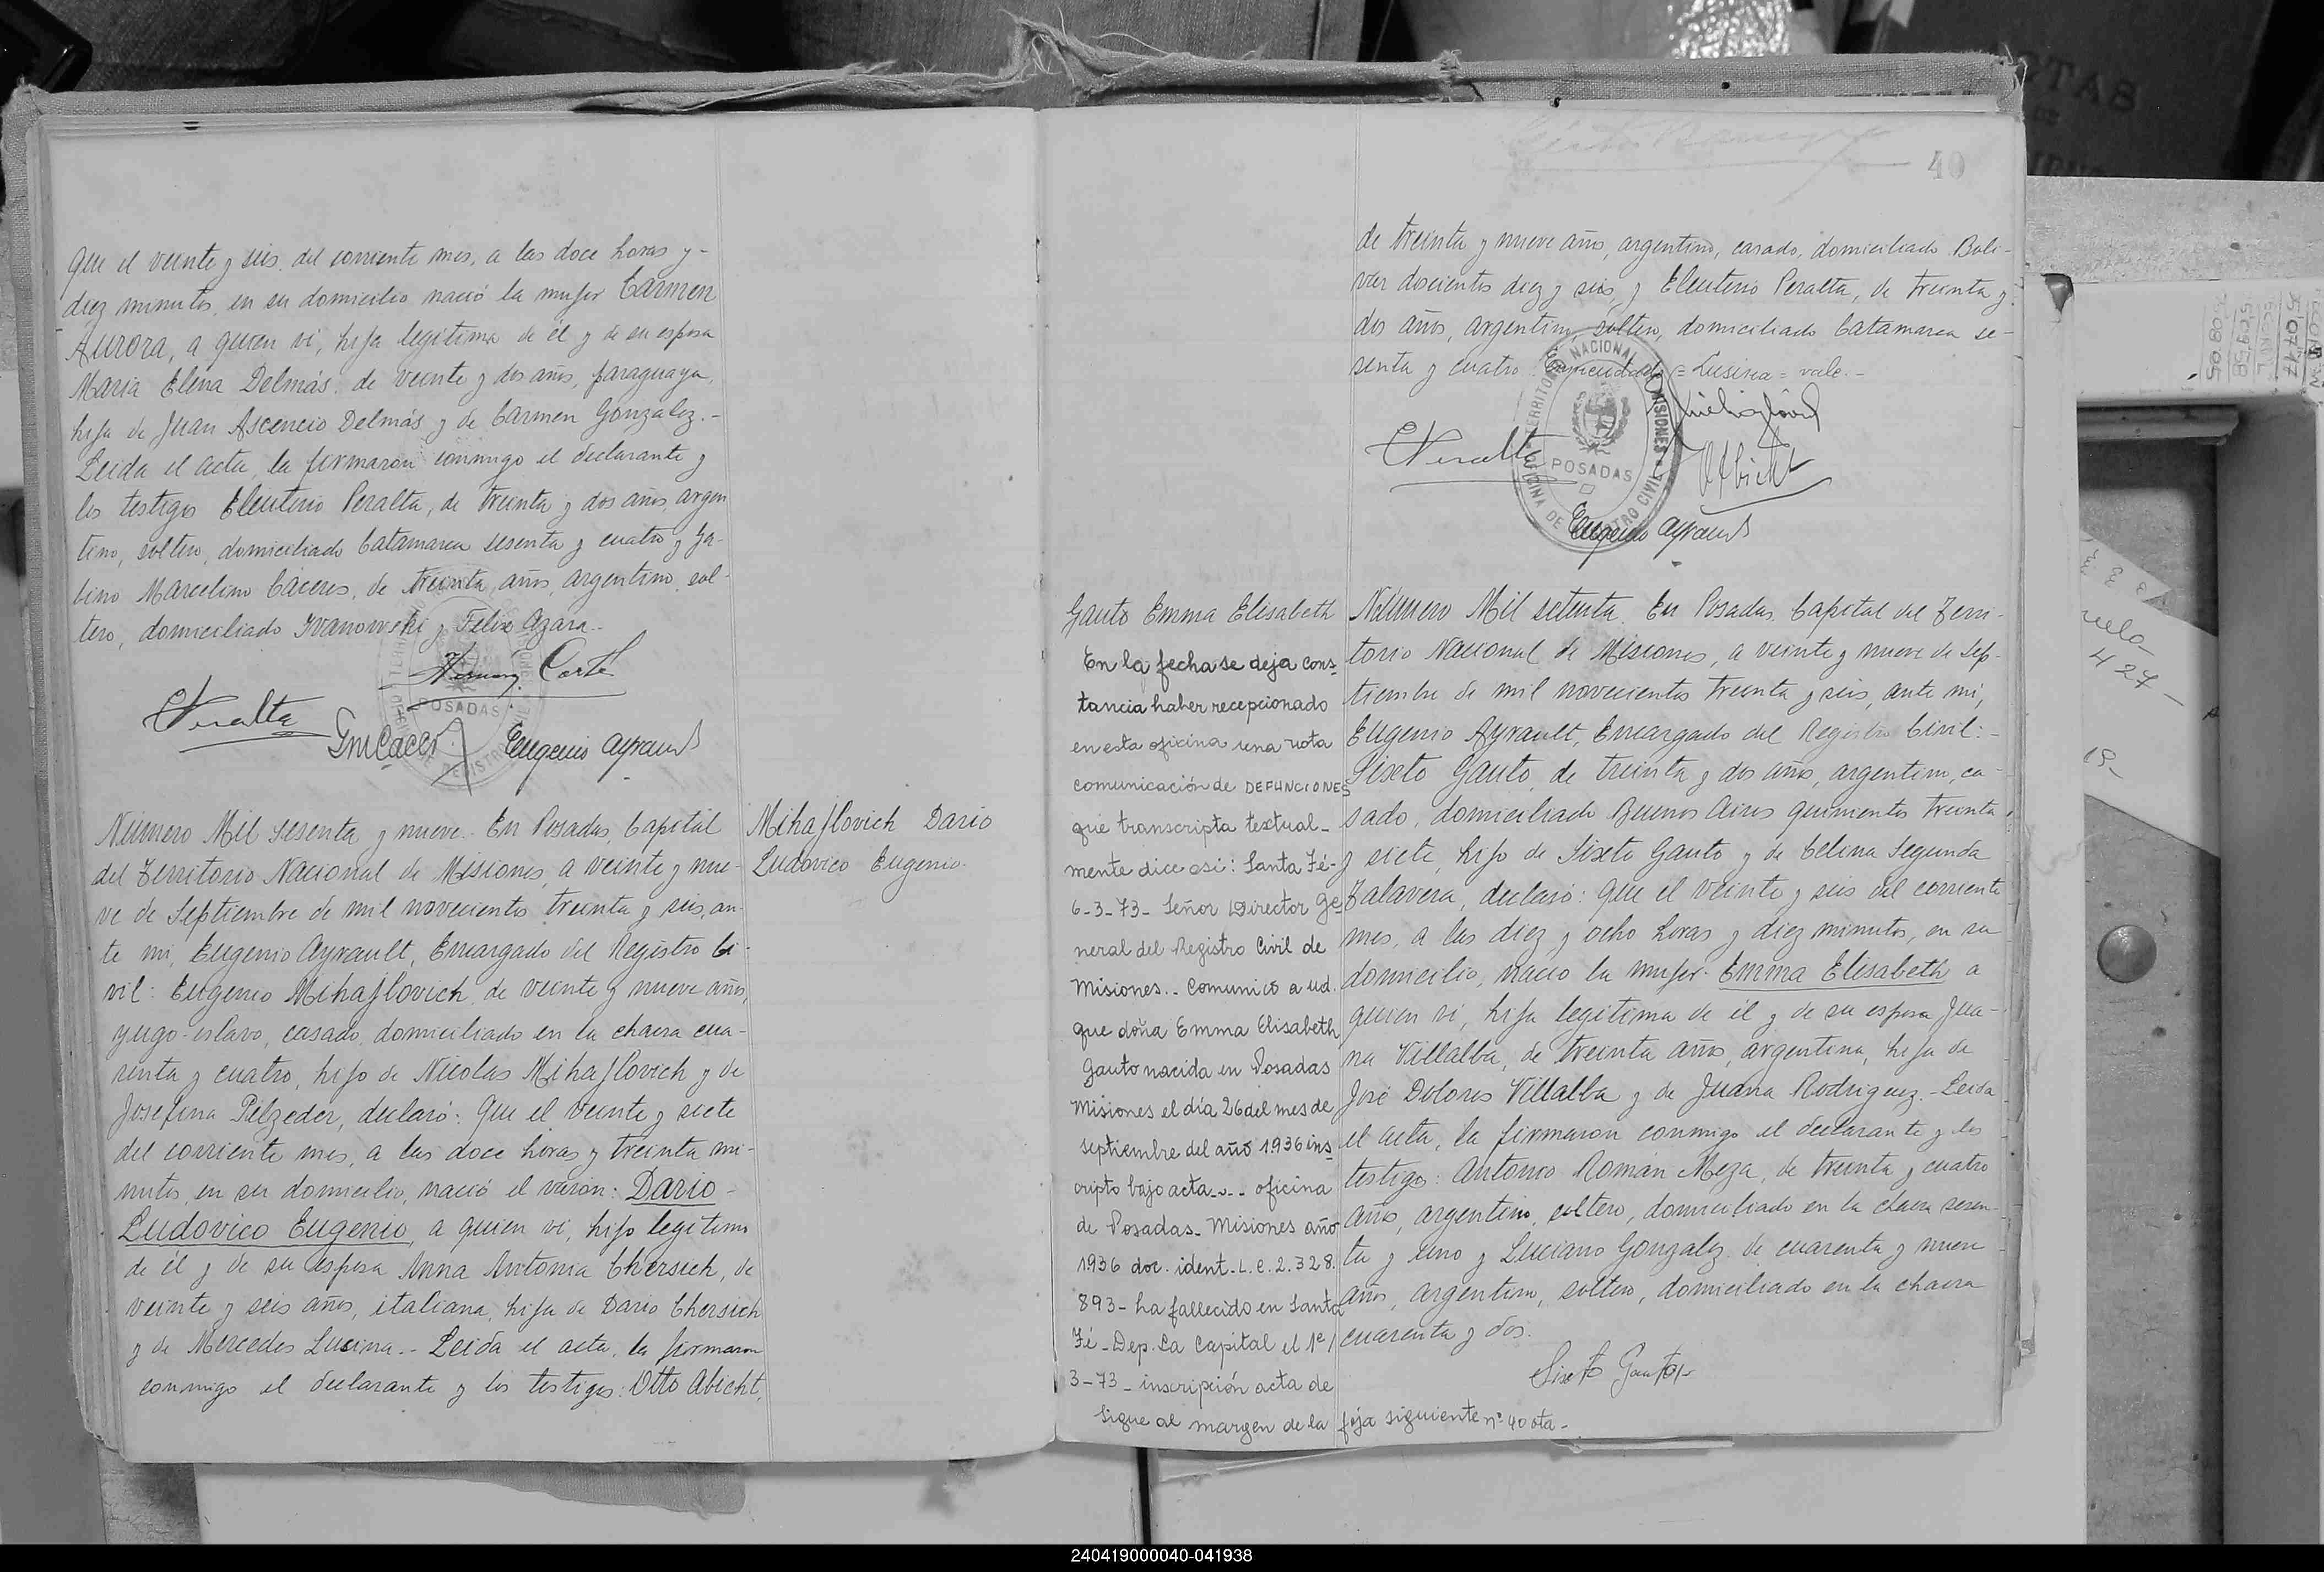 que el veinte y seis del corriente mes, a las doce horas y-
diez minutos, en su domicilio nació la mujer Carmen
Aurora, a quien vi, hija legitima de él y de su esposa
Maria Elena Delmás, de veinte y dos años, paraguaya,
hija de Juan Ascencio Delmás y de Carmen Gonzalez.-
Leida el acta, la firmaron conmigo el declarante y
los testigos Eleuterio Peralta, de treinta y dos años, argen
tino, soltero, domiciliado Catamarca sesenta y cuatro y Ga-
bino Marcelino Cáceres, de treinta años, argentino, sol-
tero, domiciliado Ivanowski y Felix Azara.-
POSADAS
EPeralta
GmCacer
Eugenio Ayrault
Número Mil sesenta y nueve.- En Posadas, Capital
del Territorio Nacional de Misiones, a veinte y nue-
ve de Septiembre de mil novecientos treinta y seis, an-
te mi, Eugenio Ayrault, Encargado del Registro Ci-
vil: Eugenio Mihajlovich, de veinte y nueve años,
yugo-eslavo, casado, domiciliado en la chacra cua-
renta y cuatro, hijo de Nicolas Mihajlovich y de
Josefina Pelzeder, declaró: Que el veinte y siete
del corriente mes, a las doce horas y treinta mi-
nutos, en su domicilio, nació el varón: Dario-
Ludovico Eugenio, a quien vi, hijo legitimo
de él y de su esposa Anna Antonia Chersich, de
veinte y seis años, italiana, hija de Dario Chersich
y de Mercedes Lusina.- Leida el acta, la firmaron
conmigo el declarante y los testigos: Otto Abicht,
Mihajlovich Dario
Ludovico Eugenio.
40
de treinta y nueve años, argentino, casado, domiciliado Boli-
var doscientos diez y seis, y Eleuterio Peralta, de treinta y
dos años, argentino, soltero, domiciliado Catamarca se-
senta y cuatro. Enmendado = Lusina = vale.-
TERRITORIO NACIONAL DE MISIONES
POSADAS
OFICINA DE REGISTRO CIVIL
EPeralta
Abicht
Eugenio Ayrault
Gauto Emma Elisabeth
En la fecha se deja cons-
tancia haber recepcionado
en esta oficina una nota
comunicación de DEFUNCIONES
que transcripta textual-
mente dice así: Santa Fé-
6-3-73- Señor Director Ge
neral del Registro Civil de
Misiones.- Comunico a ud.
que doña Emma Elisabeth
Gauto nacida en Posadas
Misiones el día 26 del mes de
septiembre del año 1.936 ins-
cripto bajo acta--- oficina
de Posadas- Misiones año
1936 doc. ident- L.C. 2.328.
893- ha fallecido en Santa
Fé- Dep. La Capital el 1º/
3-73- inscripción acta de
Sigue al margen de la foja siguiente nº 40 vta-
Número Mil setenta. En Posadas, Capital del Terri-
torio Nacional de Misiones, a veinte y nueve de Sep-
tiembre de mil novecientos treinta y seis, ante mi,
Eugenio Ayrault, Encargado del Registro Civil:-
Sixto Gauto, de treinta y dos años, argentino, ca-
sado, domiciliado Buenos Aires quinientos treinta
y siete, hijo de Sixto Gauto y de Celina Segunda
Talavera, declaró: Que el veinte y seis del corriente
mes, a las diez y ocho horas y diez minutos, en su
domicilio, nació la mujer: Emma Elisabeth a
quien vi, hija legitima de él y de su esposa Jua-
na Villalba, de treinta años, argentina, hija de
José Dolores Villalba y de Juana Rodriguez.- Leida
el acta, la firmaron conmigo el declarante y los
testigos: Antonio Román Meza, de treinta y cuatro
años, argentino, soltero, domiciliado en la chacra sesen-
ta y uno y Luciano Gonzalez, de cuarenta y nueve
años, argentino, soltero, domiciliado en la chacra
cuarenta y dos.
Sixto Gauto
427
19-
240419000040-041938